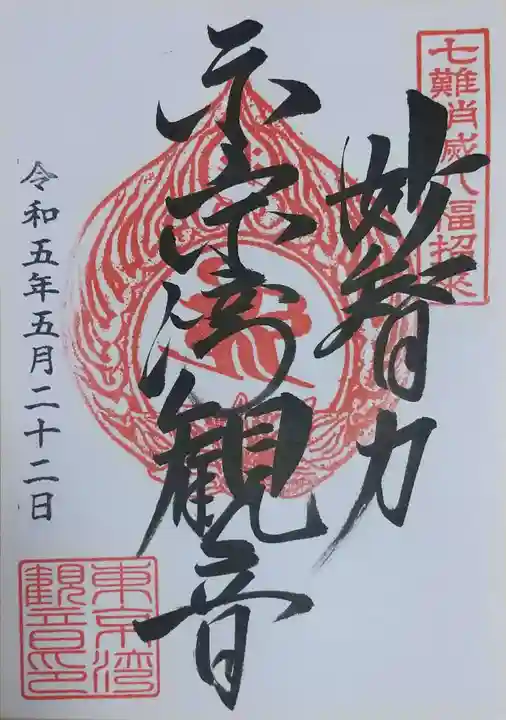 七難消滅八福招来
妙智力
東京湾観音
令和五年五月二十二日
東京湾
観音印